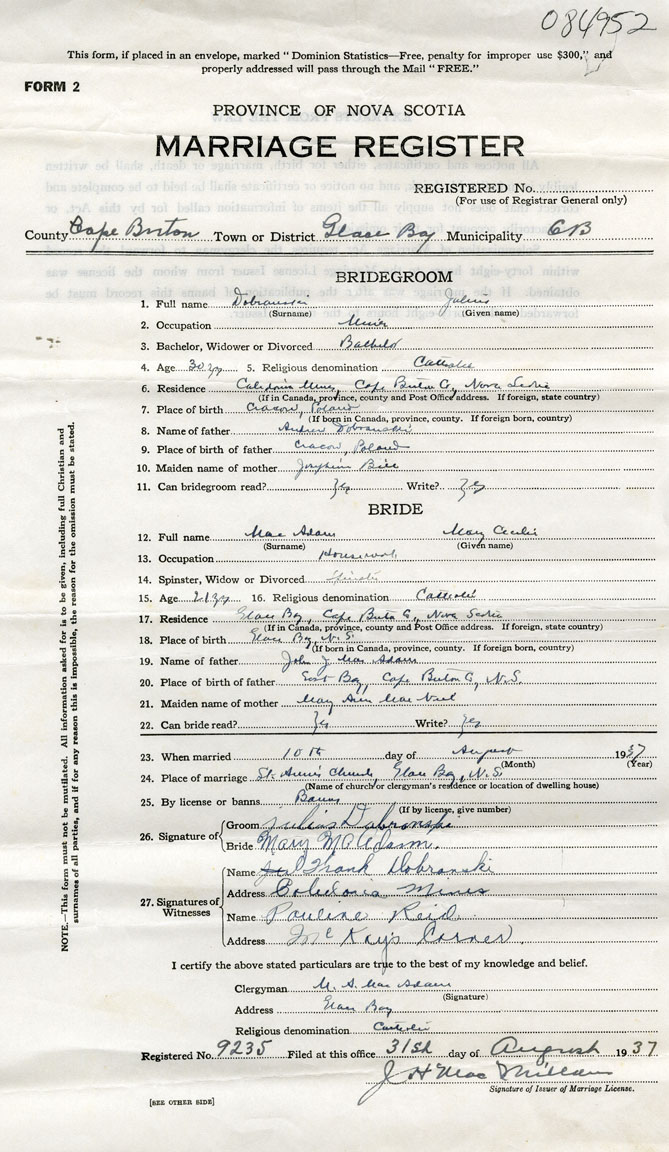 084952
This form, if placed in an envelope, marked "Dominion Statistics—Free, penalty for improper use $300," and
properly addressed will pass through the Mail "FREE."
FORM 2
PROVINCE OF NOVA SCOTIA
MARRIAGE REGISTER
REGISTERED No.
(For use of Registrar General only)
County Cape Breton Town or District Glace Bay Municipality CB
BRIDEGROOM
1. Full name Dobranski Julius
(Surname) (Given name)
2. Occupation Miner
3. Bachelor, Widower or Divorced Bachelor
4. Age 30 yrs 5. Religious denomination Catholic
6. Residence Caledonia Mines, Cape Breton Co, Nova Scotia
(If in Canada, province, county and Post Office address. If foreign, state country)
7. Place of birth Cracow, Poland
(If born in Canada, province, county. If foreign born, country)
8. Name of father Andrew Dobranski
9. Place of birth of father Cracow, Poland
10. Maiden name of mother Josephine
11. Can bridegroom read? Yes Write? Yes
BRIDE
12. Full name Mac Adam Mary Cecilia
(Surname) (Given name)
13. Occupation Housework
14. Spinster, Widow or Divorced Spinster
15. Age 21 yrs 16. Religious denomination Catholic
17. Residence Glace Bay, Cape Breton Co, Nova Scotia
(If in Canada, province, county and Post Office address. If foreign, state country)
18. Place of birth Glace Bay, N.S.
(If born in Canada, province, county. If foreign born, country)
19. Name of father John J Mac Adam
20. Place of birth of father East Bay, Cape Breton Co, N.S.
21. Maiden name of mother Mary Ann Mac Neil
22. Can bride read? Yes Write? Yes
23. When married 10th day of August 1937
(Month) (Year)
24. Place of marriage St. Anne's Church, Glace Bay, N.S.
(Name of church or clergyman's residence or location of dwelling house)
25. By license or banns Banns
(If by license, give number)
26. Signature of
Groom Julius Dobronski
Bride Mary McAdam.
27. Signatures of Witnesses
Name Frank Dobranski
Address Caledonia Mines
Name Pauline Reid.
Address McKay's Corner.
I certify the above stated particulars are true to the best of my knowledge and belief.
Clergyman M. A. Mac Adam
(Signature)
Address Glace Bay
Religious denomination Catholic
Registered No. 9235 Filed at this office 31st day of August 1937
J H Mac Millan
Signature of Issuer of Marriage License.
[SEE OTHER SIDE]
NOTE.—This form must not be mutilated. All information asked for is to be given, including full Christian and
surnames of all parties, and if for any reason this is impossible, the reason for the omission must be stated.